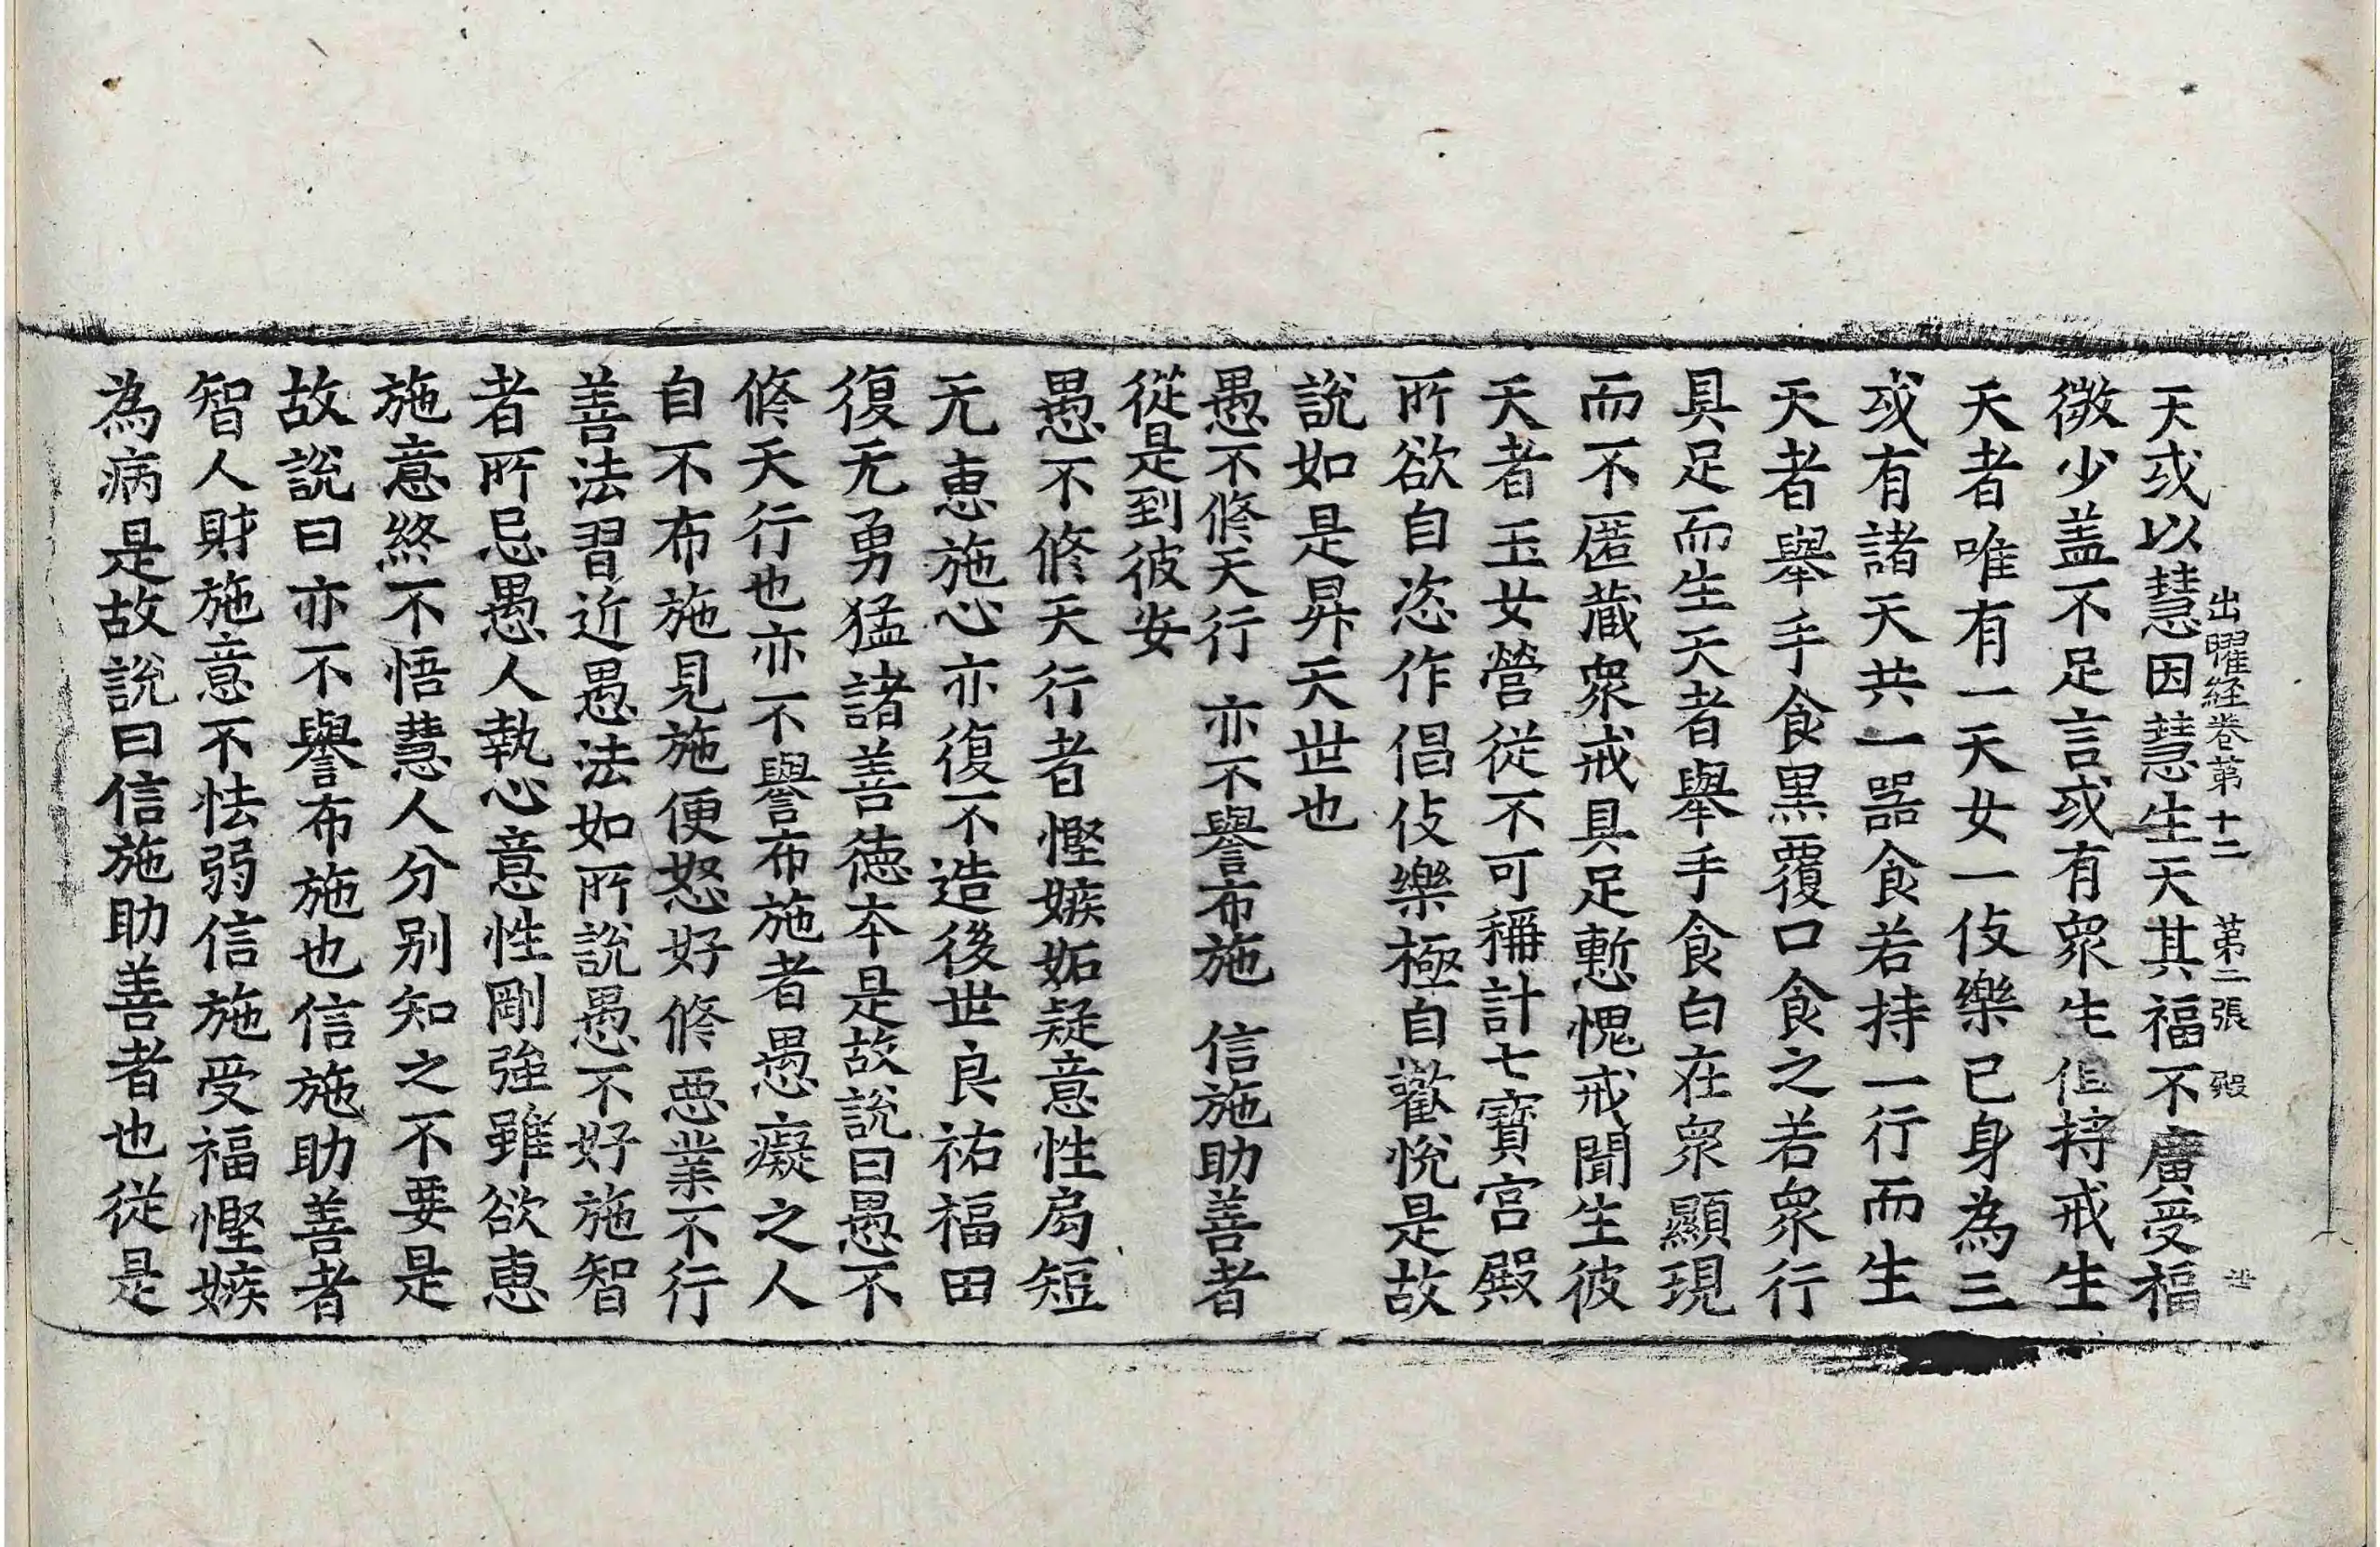 出曜経卷苐十二　苐二張　殿
天或以慧因慧生天其福不廣受福
微少盖不足言或有衆生但持戒生
天者唯有一天女一伎樂已身為三
或有諸天共一器食若持一行而生
天者舉手食黒覆口食之若衆行
具足而生天者舉手食白在衆顯現
而不匿蔵衆戒具足慙愧戒聞生彼
天者玉女營從不可稱計七寶宮殿
所欲自恣作倡伎樂極自歡悅是故
說如是昇天世也
愚不修天行　亦不譽布施　信施助善者
從是到彼安
愚不修天行者慳嫉妬疑意性局短
无恵施心亦復不造後世良祐福田
復无勇猛諸善徳本是故說曰愚不
修天行也亦不譽布施者愚癡之人
自不布施見施便怒好修惡業不行
善法習近愚法如所說愚不好施智
者所忌愚人執心意性剛強雖欲恵
施意終不悟慧人分别知之不要是
故說曰亦不譽布施也信施助善者
智人財施意不怯弱信施受福慳嫉
為病是故說曰信施助善者也從是